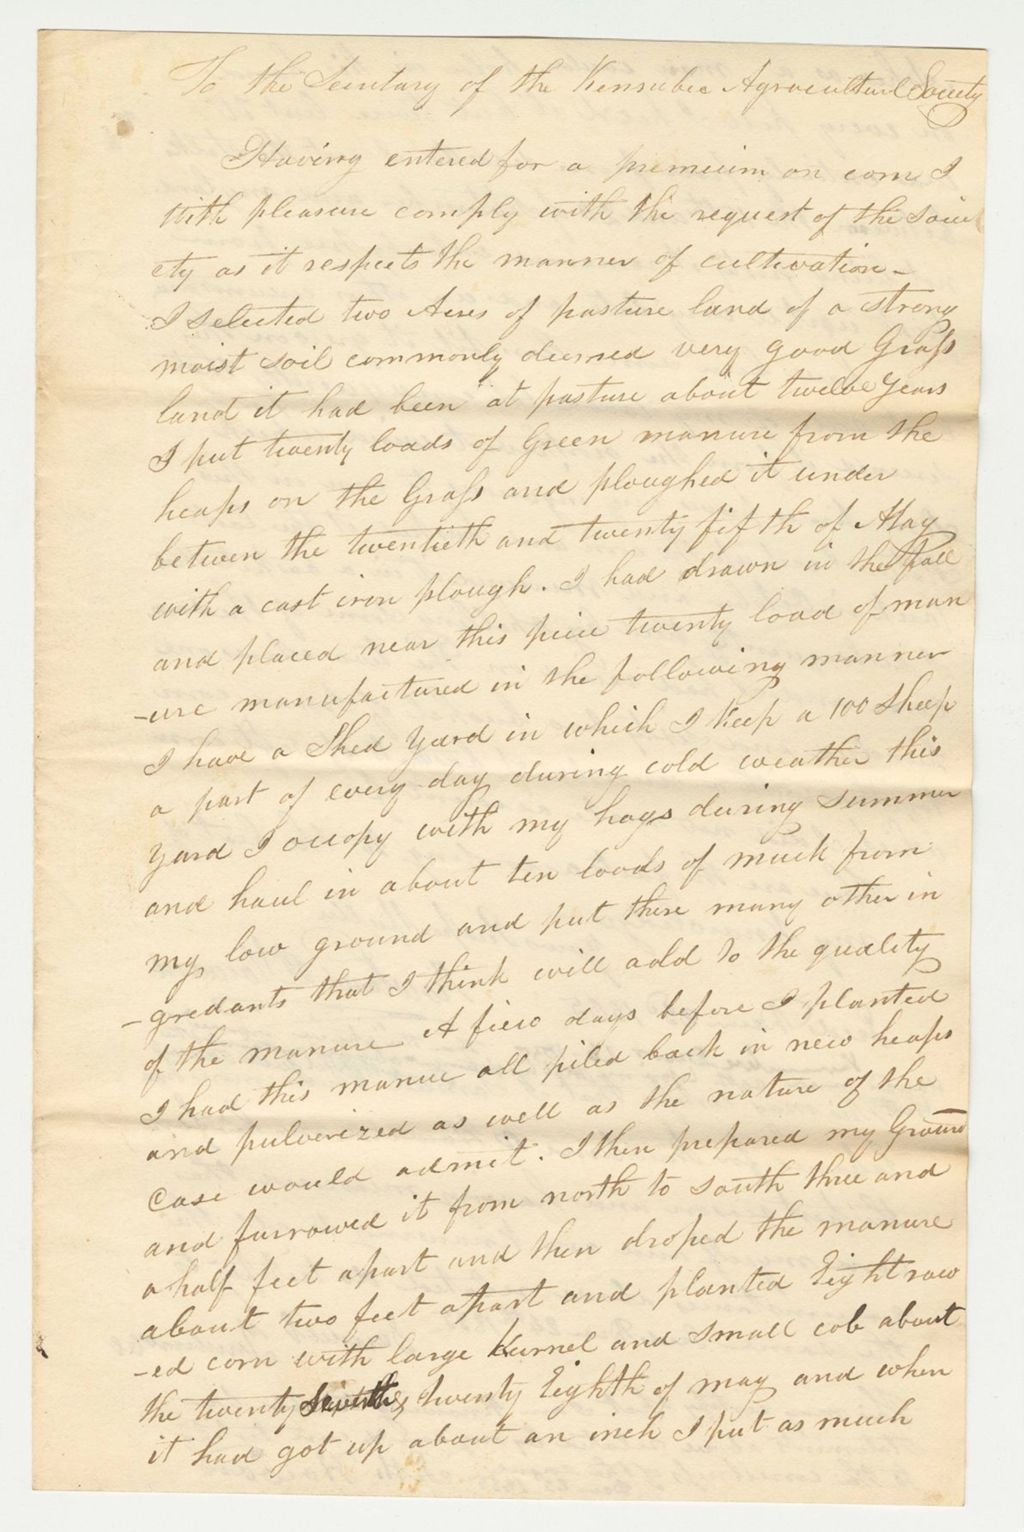 To the Secretary of the Kennebec Agricultural Society
Having entered for a premium on corn I
With pleasure comply with the request of the Soci
ety as it respects the manner of cultivation -
I selected two Acres of pasture land of a strong
moist soil commonly deemed very good Grass
land it had been at pasture about twelve years
I put twenty loads of Green manure from the
heaps on the Grass and ploughed it under
between the twentieth and twenty fifth of May
with a cast iron plough. I had drawn in the fall
and placed near this piece twenty load of man
-ure manufactured in the following manner
I have a Shed yard in which I Keep a 100 Sheep
a part of every day during cold weather this
yard I occupy with my hogs during Summer
and haul in about ten loads of muck from
my low ground and put there many other in
-gredants that I think will add to the quality
of the manure A few days before I planted
I had this manure all piled back in new heaps
and pulverized as well as the nature of the
Case would admit. I then prepared my Ground
and furrowed it from north to south three and
a half feet apart and then droped the manure
about two feet apart and planted Eight row
-ed corn with large Kurnel and Small cob about
the twenty Seventh & twenty Eighth of may and when
it had got up about an inch I put as much